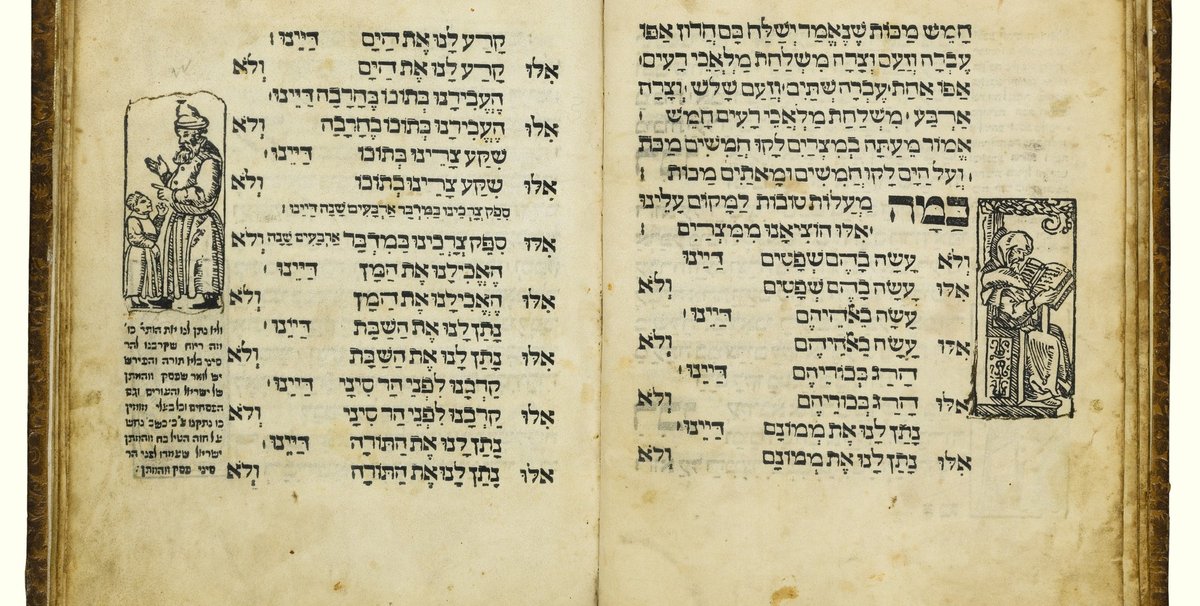 חָמֵשׁ מַכּוֹת שֶׁנֶּאֱמַר יְשַׁלַּח בָּם חֲרוֹן אַפּוֹ
עֶבְרָה וָזַעַם וְצָרָה מִשְׁלַחַת מַלְאֲכֵי רָעִים׃
אַפּוֹ אַחַת׳ עֶבְרָה שְׁתַּיִם׳ וָזַעַם שָׁלֹשׁ׳ וְצָרָה
אַרְבַּע׳ מִשְׁלַחַת מַלְאֲכֵי רָעִים חָמֵשׁ׳
אֱמוֹר מֵעַתָּה בְּמִצְרַיִם לָקוּ חֲמִשִּׁים מַכֹּת
וְעַל הַיָּם לָקוּ חֲמִשִּׁים וּמָאתַיִם מַכּוֹת׳
כַּמָּה מַעֲלוֹת טוֹבוֹת לַמָּקוֹם עָלֵינוּ
אִלּוּ הוֹצִיאָנוּ מִמִּצְרַיִם׳
וְלֹא עָשָׂה בָהֶם שְׁפָטִים דַּיֵּנוּ׳
אִלּוּ עָשָׂה בָהֶם שְׁפָטִים וְלֹא
עָשָׂה בֵאלֹהֵיהֶם דַּיֵּנוּ׳
אִלּוּ עָשָׂה בֵאלֹהֵיהֶם וְלֹא
הָרַג בְּכוֹרֵיהֶם דַּיֵּנוּ׳
אִלּוּ הָרַג בְּכוֹרֵיהֶם וְלֹא
נָתַן לָנוּ אֶת מְמוֹנָם דַּיֵּנוּ׳
אִלּוּ נָתַן לָנוּ אֶת מְמוֹנָם וְלֹא
קָרַע לָנוּ אֶת הַיָּם דַּיֵּנוּ׳
אִלּוּ קָרַע לָנוּ אֶת הַיָּם וְלֹא
הֶעֱבִירָנוּ בְּתוֹכוֹ בֶּחָרָבָה דַּיֵּנוּ׳
אִלּוּ הֶעֱבִירָנוּ בְּתוֹכוֹ בֶּחָרָבָה וְלֹא
שִׁקַּע צָרֵינוּ בְּתוֹכוֹ דַּיֵּנוּ׳
אִלּוּ שִׁקַּע צָרֵינוּ בְּתוֹכוֹ וְלֹא
סִפֵּק צָרְכֵינוּ בַּמִּדְבָּר אַרְבָּעִים שָׁנָה דַּיֵּנוּ׳
אִלּוּ סִפֵּק צָרְכֵינוּ בַּמִּדְבָּר אַרְבָּעִים שָׁנָה וְלֹא
הֶאֱכִילָנוּ אֶת הַמָּן דַּיֵּנוּ׳
אִלּוּ הֶאֱכִילָנוּ אֶת הַמָּן וְלֹא
נָתַן לָנוּ אֶת הַשַּׁבָּת דַּיֵּנוּ׳
אִלּוּ נָתַן לָנוּ אֶת הַשַּׁבָּת וְלֹא
קֵרְבָנוּ לִפְנֵי הַר סִינַי דַּיֵּנוּ׳
אִלּוּ קֵרְבָנוּ לִפְנֵי הַר סִינַי וְלֹא
נָתַן לָנוּ אֶת הַתּוֹרָה דַּיֵּנוּ׳
אִלּוּ נָתַן לָנוּ אֶת הַתּוֹרָה וְלֹא
ולא נתן לנו את התור׳ כו׳
וזה ריוח שקרבנו להר
סיני בלא תורה
יש לומר שפסק׳ זוהמתן
של ישראל והעורים וגם
הפסחים וכל בעלי מומין
כו נתקנו נחש
על חוה הטיל בה זוהמתן
ישראל שעמדו לפני הר
סיני פסק׳ זוהמתן׃